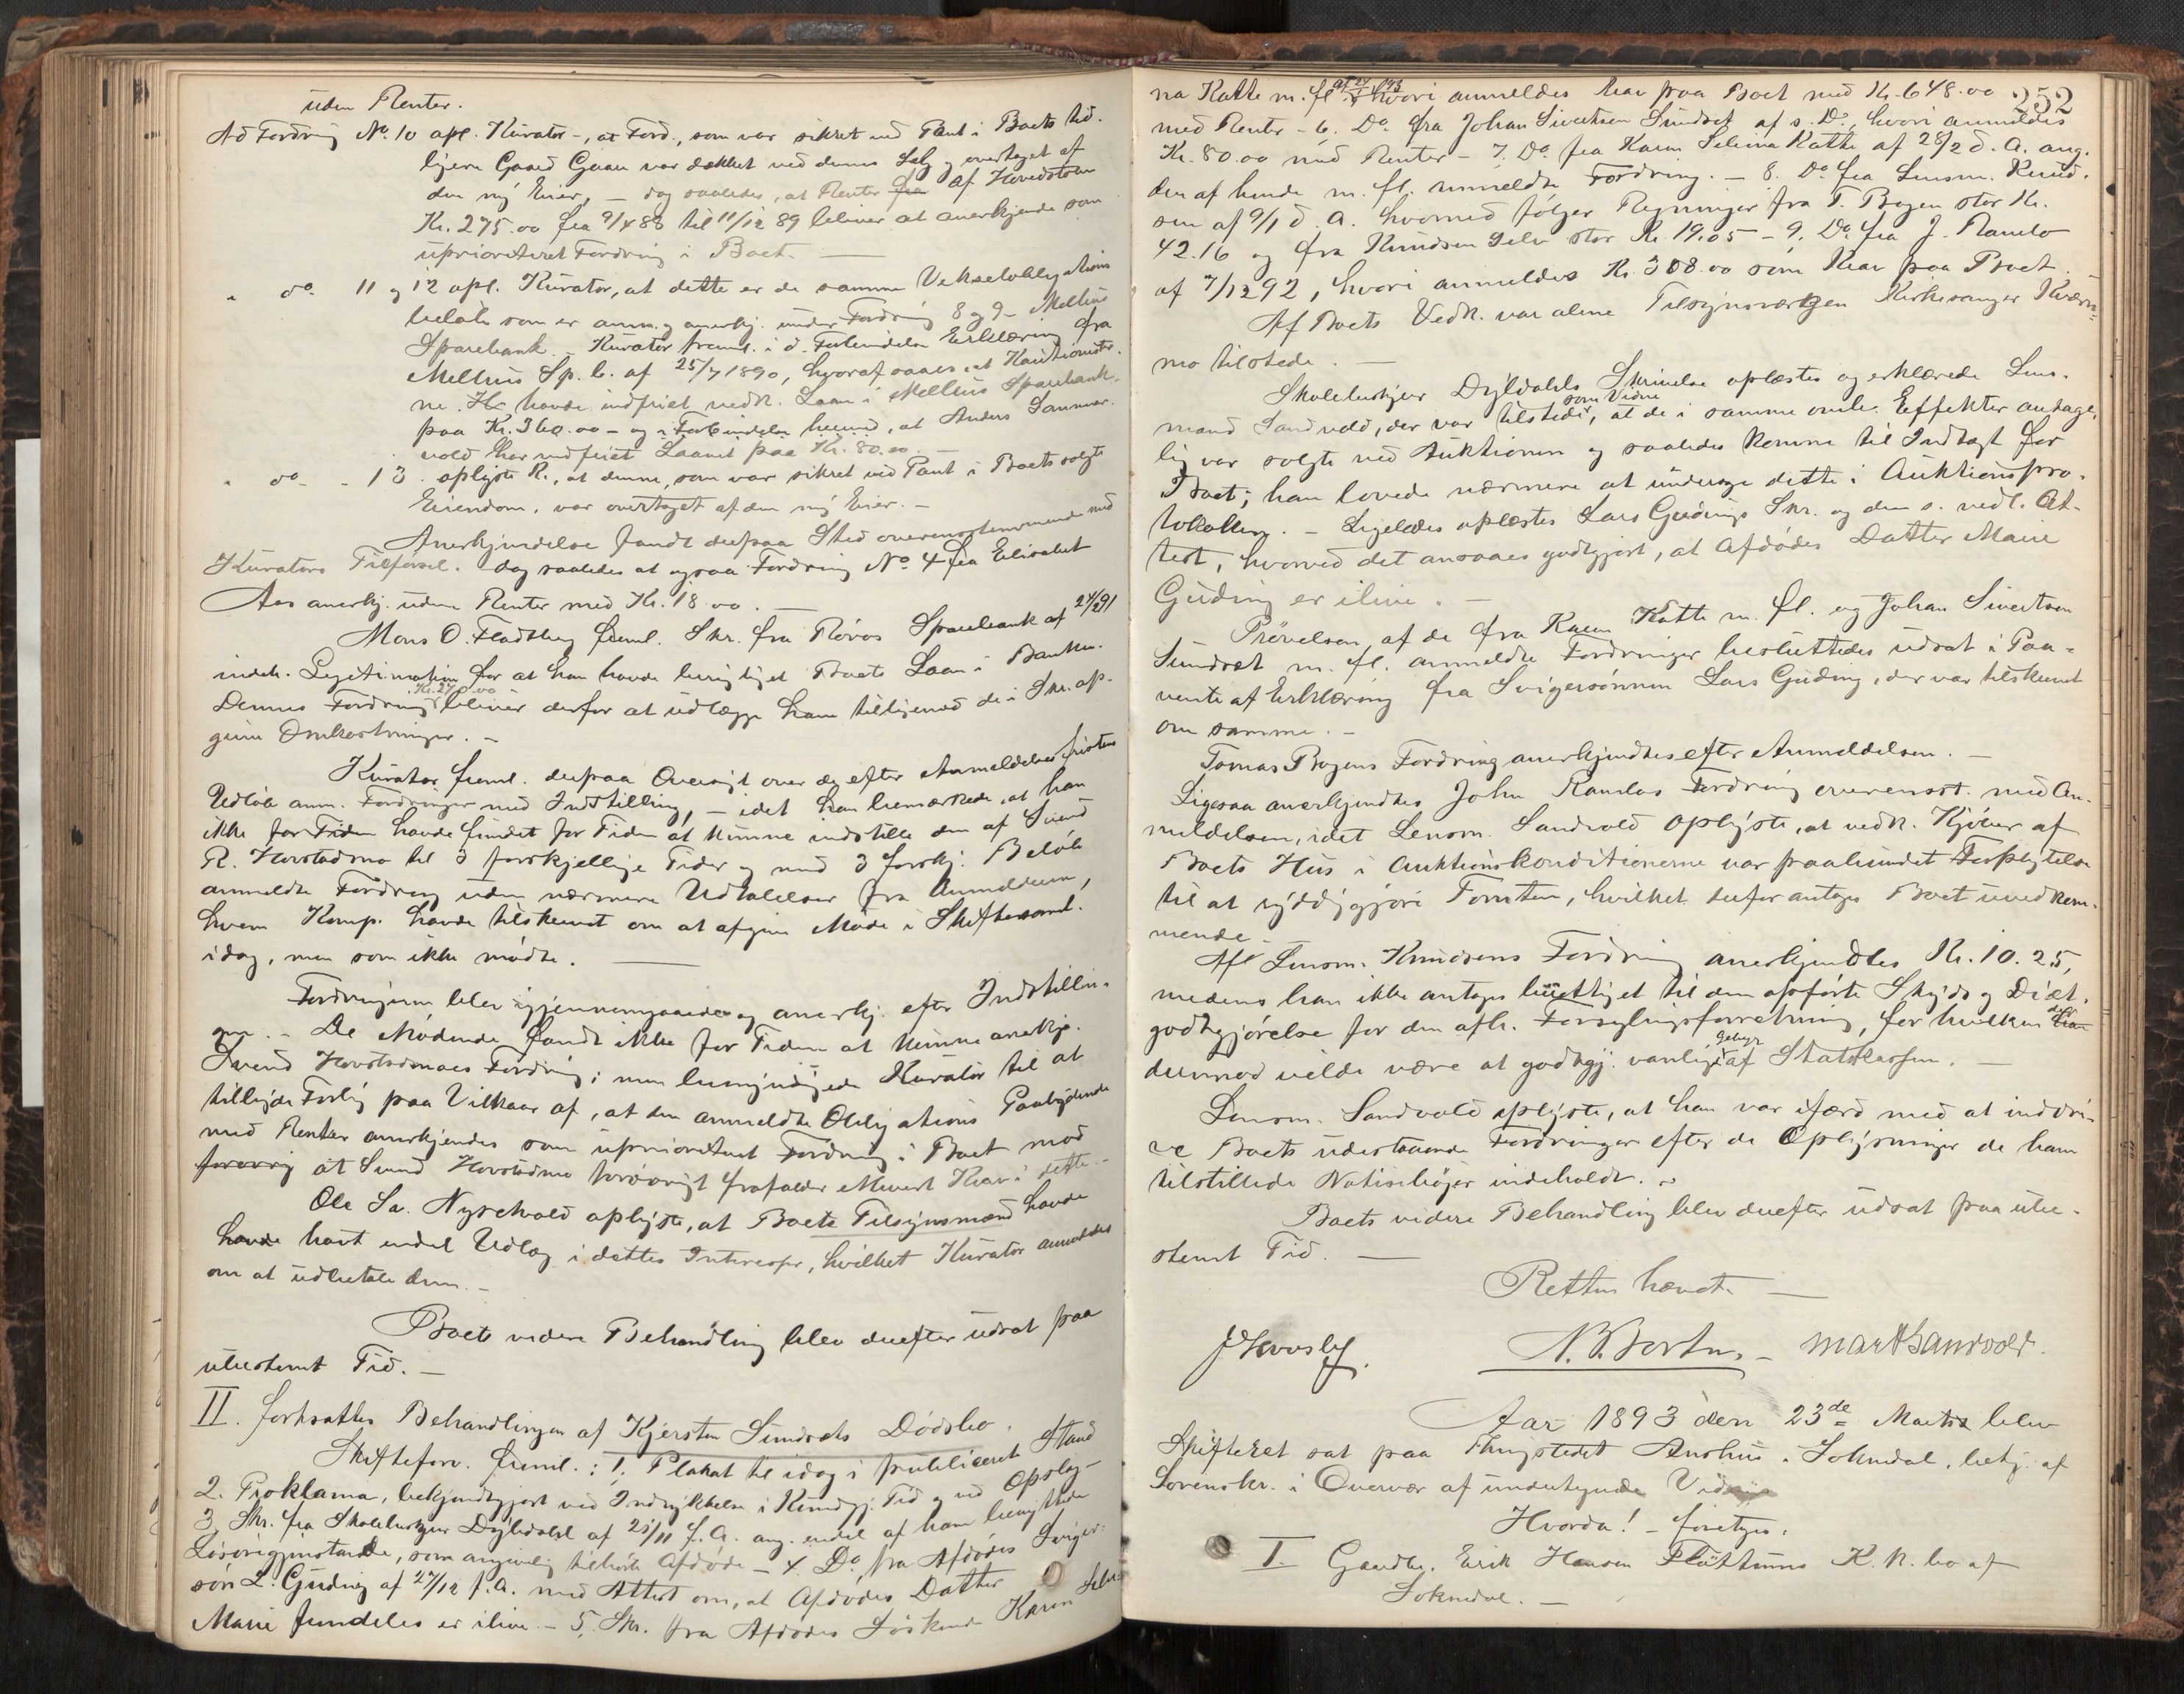 uden Renter.
Ad Fordring No. 10 opl. Kurator -, at Ford., som var sikret ved Pant i Boets tid.
ligere Gaard Gaare var dækket ved dennes Salg og overtaget af
den ny Eier, - dog saaledes, at Renter fra af Hovedstolen
Kr. 275.00 fra 9/4 88 til 11/12 89 bliver at anerkjende som
uprioriteret Fordring i Boet. —
" do. 11 og 12 opl. Kurator, at dette er de samme Vekselobligations
beløb som er anm. og anerkj. under Fordring 8 og 9 - Melhus
Sparebank. - Kurator freml. i d. Forbindelse Erklæring fra
Melhus Sp.b. af 25/7 1890, hvoraf saaes, at Kautionister
ne. H. havde indfriet vedk. Laan i Melhus Sparebank
paa Kr. 360.00 - og i Forbindelse hermed, at Anders Sanmar-
vold har indfriet Laanet paa Kr. 80.00. —
" do. - 13. oplyste K., at denne, som var sikret ved Pant i Boets solgte
Eiendom, var overtaget af den ny Eier. -
Anerkjendelse fandt derpaa Sted overensstemmende med
Kurators Tilførsel. dog saaledes at ogsaa Fordring No. 4 fra Elisabet
Aas anerkj. uden Renter med Kr. 18.00. —
Mons O. Fladberg freml. Skr. fra Røros Sparebank af 24/2 91
indeh. Legitimation for at han havde berigtiget Boets Laan i Banken.
Dennes Fordring Kr. 27.00 bliver derfor at udlægge ham tilligemed de i Skr. op-
givne Omkostninger. -
Kurator freml. derpaa Oversigt over de efter Anmeldelsesfristens
Udløb anm. Fordringer med Indstilling, - idet han bemærkede, at han
ikke for Tiden havde fundet for Tiden at kunne indstille den af Svend
R. Hovstadmo til 3 forskjellige Tider og med 3 forskj. Beløb
anmeldte Fordring uden nærmere Udtalelser fra Anmelderen,
hvem Komp. havde tilskrevet om at afgive Møde i Skiftesaml.
idag, men som ikke mødte. —
Fordringerne blev igjennemgaaede og anerkj. efter Indstillin-
gen. - De Mødende fandt ikke for Tiden at kunne anerkje.
Svend Hovstadmoes Fordring; men bemyndigede Kurator til at
tilbyde Forlig paa Vilkaar af, at den anmeldte Obligations Paalydende
med Renter anerkjendes som uprioriteret Fordring i Boet mod
forøvrig at Svend Hovstadmo forøvrigt frafalder ethvert Krav i dette. -
Ole Sa. Nyrehvold oplyste, at Boets Tilsynsmænd havde
havde havt endel Udlæg i dettes Interesse, hvilket Kurator anmodedes
om at udbetale dem. -
Boets videre Behandling blev derefter udsat paa
ubestemt Tid. -
II. fortsattes Behandlingen af Kjersten Sundsets Dødsbo.
Skifteforv. freml.: 1. Plakat til idag i publiceret Stand
2. Proklama, bekjendtgjort ved Indrykkelse i Kundgj. Tid og ved Opslag -
3. Skr. fra Skolebestyrer Dyldahl af 21/11 f.A. ang. endel af ham benyttede
Løsøregjenstande, som angivelig tilhørte Afdøde - 4. Do. fra Afdødes Sviger-
søn L. Guding af 27/12 f.A. med Attest om, at Afdødes Datter
Marie fremdeles er ilive. - 5. Skr. fra Afdødes Søskende Karen Seli-
252
na Katte m. fl. af 27/1 1893 hvori anmeldes krav paa Boet med Kr. 648.00
med Renter - 6. Do. fra Johan Sivertsen Sundset af s. D., hvori anmeldes
Kr. 80.00 med Renter - 7. Do. fra Karen Selina Katte af 28/2 d. A. ang.
den af hende m. fl. anmeldte Fordring. - 8. Do. fra Lensm. Knud-
sen af 9/1 d. A. hvormed følger Regninger fra T. Bogen stor Kr.
42.16 og fra Knudsen selv stor Kr. 19.05 - 9. Do. fra J. Ramlo
af 7/12 92, hvori anmeldes Kr. 308.00 som Krav paa Boet.
Af Boets Vedk. var alene Tilsynsværgen Kirkesanger Kværn-
mo tilstede. —
Skolebestyrer Dyldahls Skrivelse oplæstes og erklærede Lens-
mand Sandvold, der var tilstede som Vidne, at de i samme omh. Effekter antage-
lig var solgte ved Auktionen og saaledes komme til Indtægt for
Boet; han lovede nærmere at undersøge dette i Auktionspro-
tokollen. - Ligeledes oplæstes Lars Gudings Skr. og den s. vedl. At-
test, hvorved det ansaaes godtgjort, at Afdødes Datter Marie
Guding er ilive. -
Prøvelsen af de fra Karen Katte m. fl. og Johan Sivertsen
Sundset m. fl. anmeldte Fordringer besluttedes udsat i Paa-
vente af Erklæring fra Svigersønnen Lars Guding, der var tilskrevet
om samme. -
Tomas Bogens Fordring anerkjendtes efter Anmeldelsen. -
Ligesaa anerkjendtes John Ramlos Fordring overensst. med An-
meldelsen, idet Lensm. Sandvold oplyste, at vedk. Kjøber af
Boets Hus i Auktionskonditionerne var paabundet Forpligtelse
til at ryddiggjøre Tomten, hvilket derfor antages Boet uvedkom-
mende. -
Af Lensm. Knudsens Fordring anerkjendtes Kr. 10.25,
medens han ikke antages berettiget til den opførte Skyds og Diæt-
godtgjørelse for den afh. Forseglingsforretning, for hvilken han der
derimod vilde være at godtgj. vanlig Gebyr af Statskassen. -
Lensm. Sandvold oplyste, at han var ifærd med at inddri-
ve Boets udestaaende Fordringer efter de Oplysninger de ham
tilstillede Notisebøger indeholdt. -
Boets videre Behandling blev derefter udsat paa ube-
stemt Tid. —
Retten hævet. —
N. B. Borten - Mart Sandvold.
Aar 1893 den 23de Marts blev
Skifteret sat paa Thingstedet Aushus i Soknedal, betj. af
Sorenskr. i Overvær af undertegnede Vidner
Hvorda! - foretoges:
I. Gaardbr. Erik Hansen Flåttums K. k. bo af
Soknedal. -